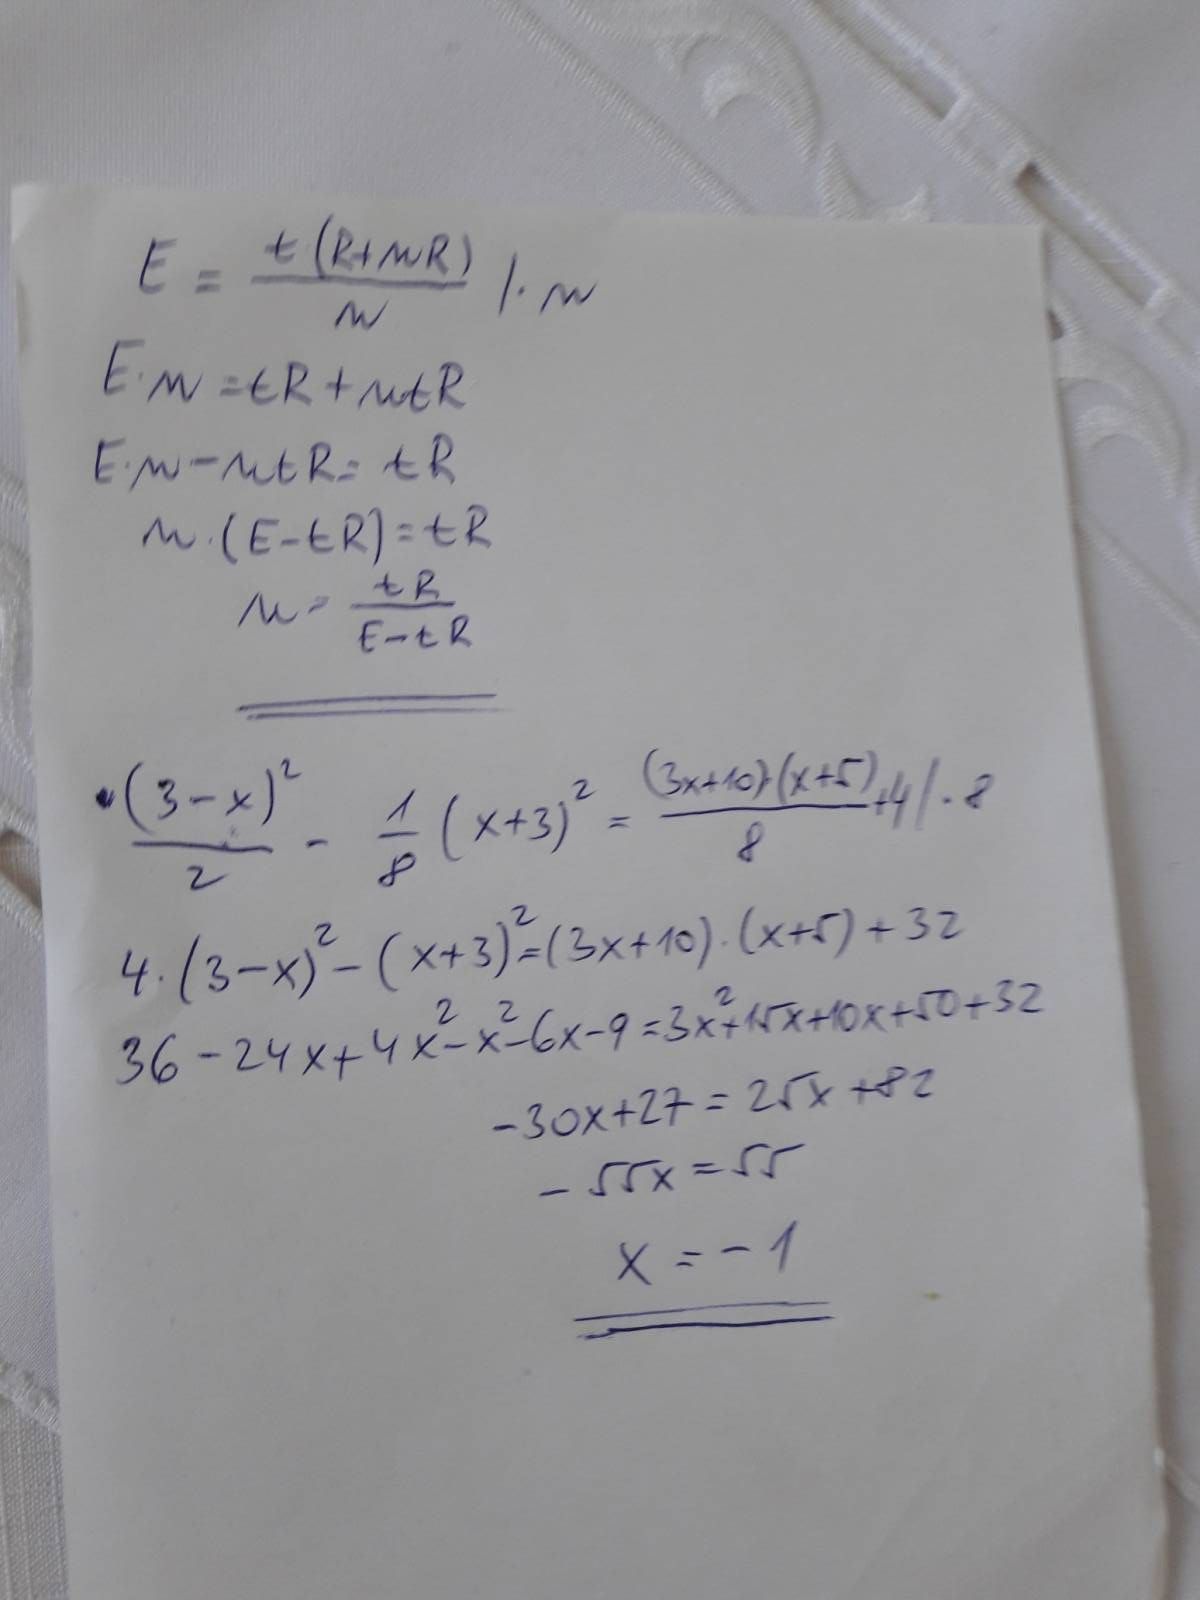 E = t(R+nR)/n /·n
E·n = tR + ntR
E·n − ntR = tR
n·(E−tR) = tR
n = tR/(E−tR)
(3−x)²/2 − 1/8 (x+3)² = (3x+10)·(x+5)/8 + 4 /·8
4·(3−x)² − (x+3)² = (3x+10)·(x+5) + 32
36 − 24x + 4x² − x² − 6x − 9 = 3x² + 15x + 10x + 50 + 32
−30x + 27 = 25x + 82
−55x = 55
x = −1